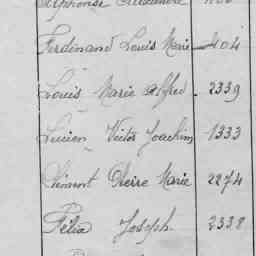 Alphonse Alexandre
Ferdinand Louis Marie 404
Louis Marie Alfred 2339
Lucien Victor Joachim 1333
Clément Pierre Marie 2274
Félix Joseph 2338